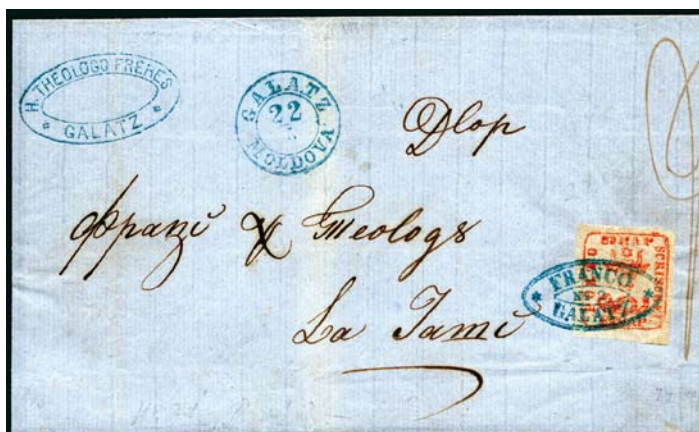 H. THEOLOGO FRÈRES
* GALATZ *
GALATZ
22
MOLDOVA
Dlop
Franzi & Theologo
La Iami
SCRISO
* FRANCO *
No 2
GALATZ